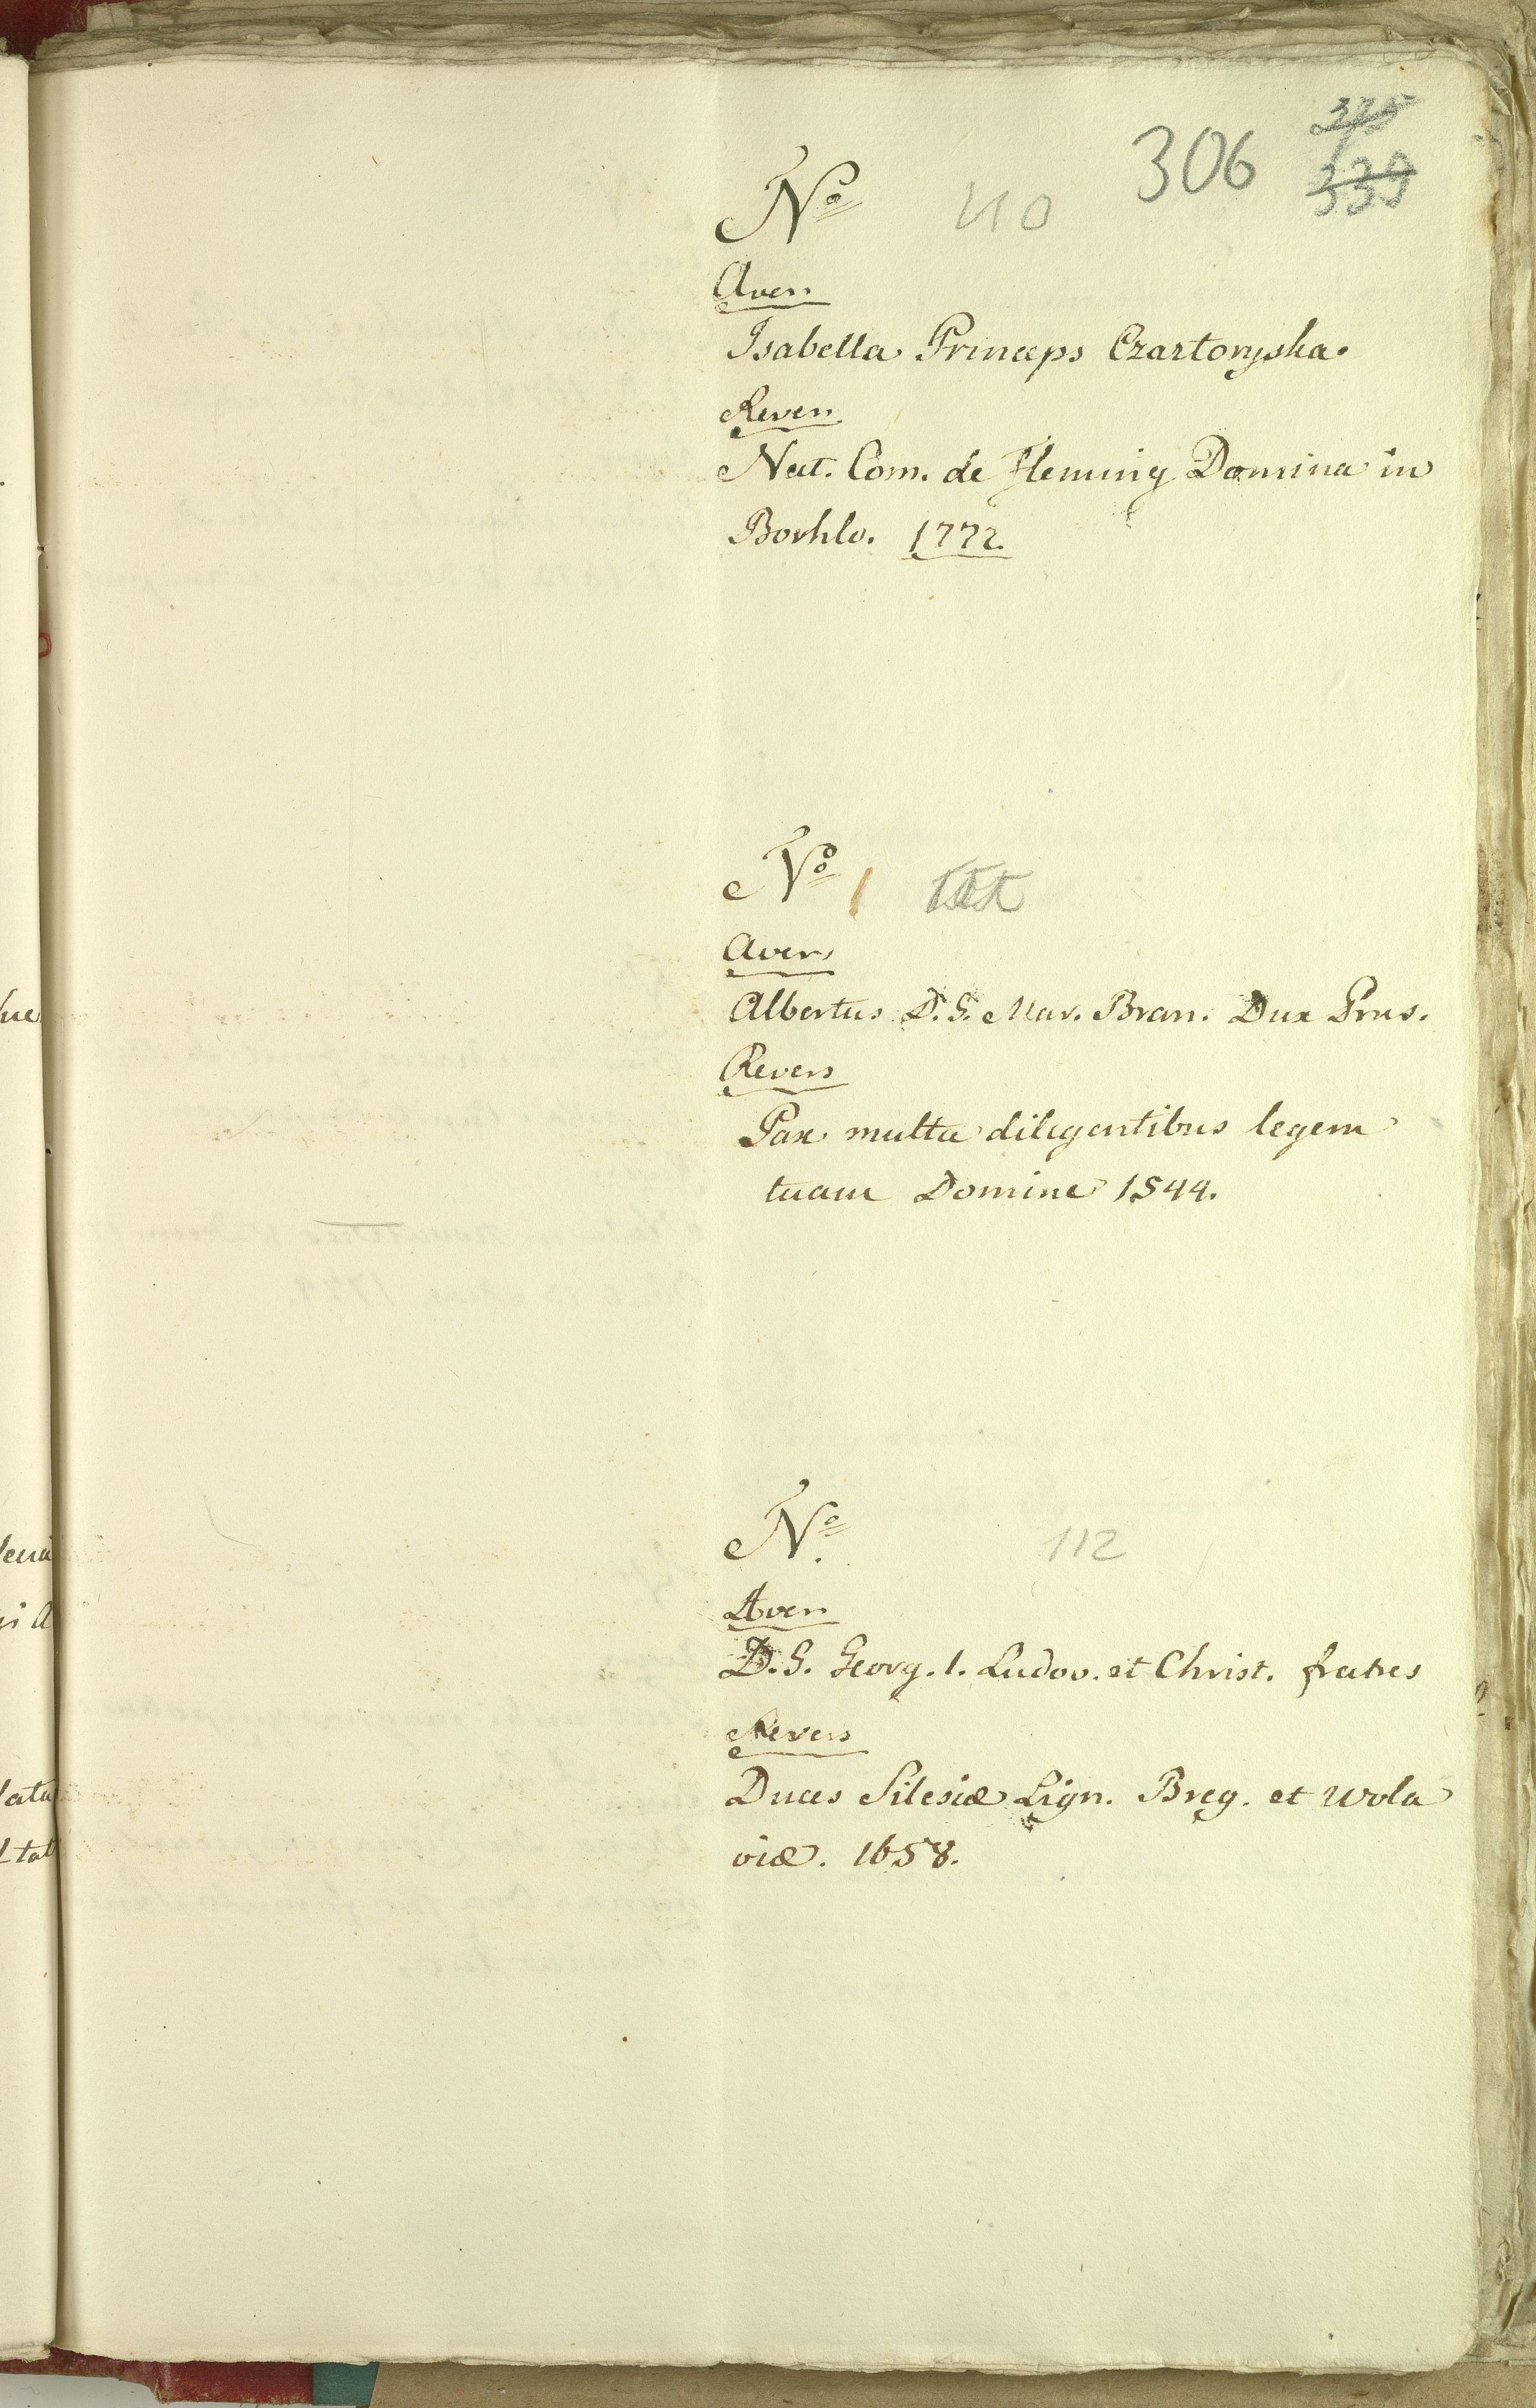 306
375
339
No 110
Avers
Isabella Princeps Czartoryska.
Revers
Nat. Com. de Fleming Domina in
Borhlo. 1772.
No
Avers
Albertus D. G. Mar. Bran. Dux Prus.
Revers
Pax multa diligentibus legem
tuam Domine 1544.
No 112
Avers
D. G. Georg. I. Ludov. et Christ. fratres
Revers
Duces Silesiæ Lign. Breg. et Wola
viæ. 1658.